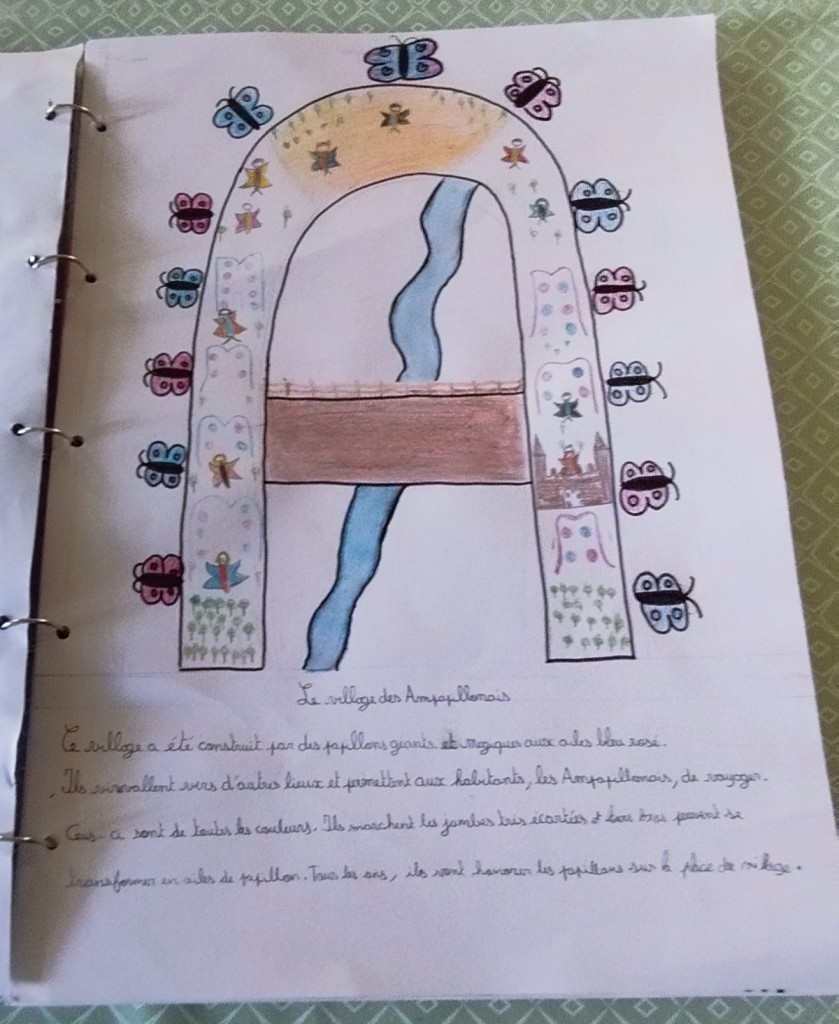 Le village des Ampapillonais
Ce village a été construit par des papillons géants et magiques aux ailes bleu rosé.
Ils virevoltent vers d'autres lieux et permettent aux habitants, les Ampapillonais, de voyager.
Ceux-ci sont de toutes les couleurs. Ils marchent les jambes très écartées et leurs bras peuvent se
transformer en ailes de papillon. Tous les ans, ils vont honorer les papillons sur la place du village.